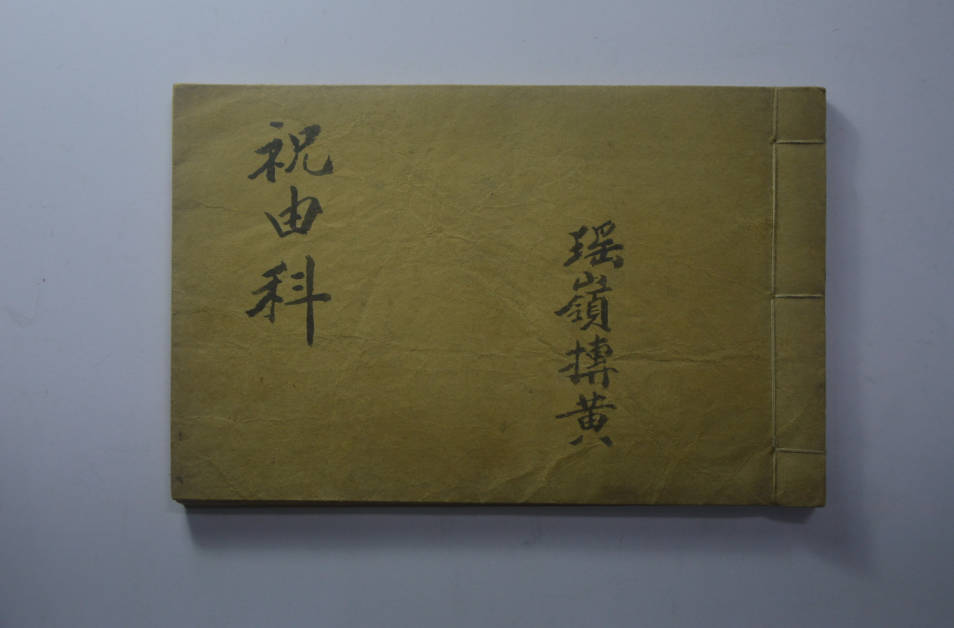 祝由科
瑶嶺摶黄